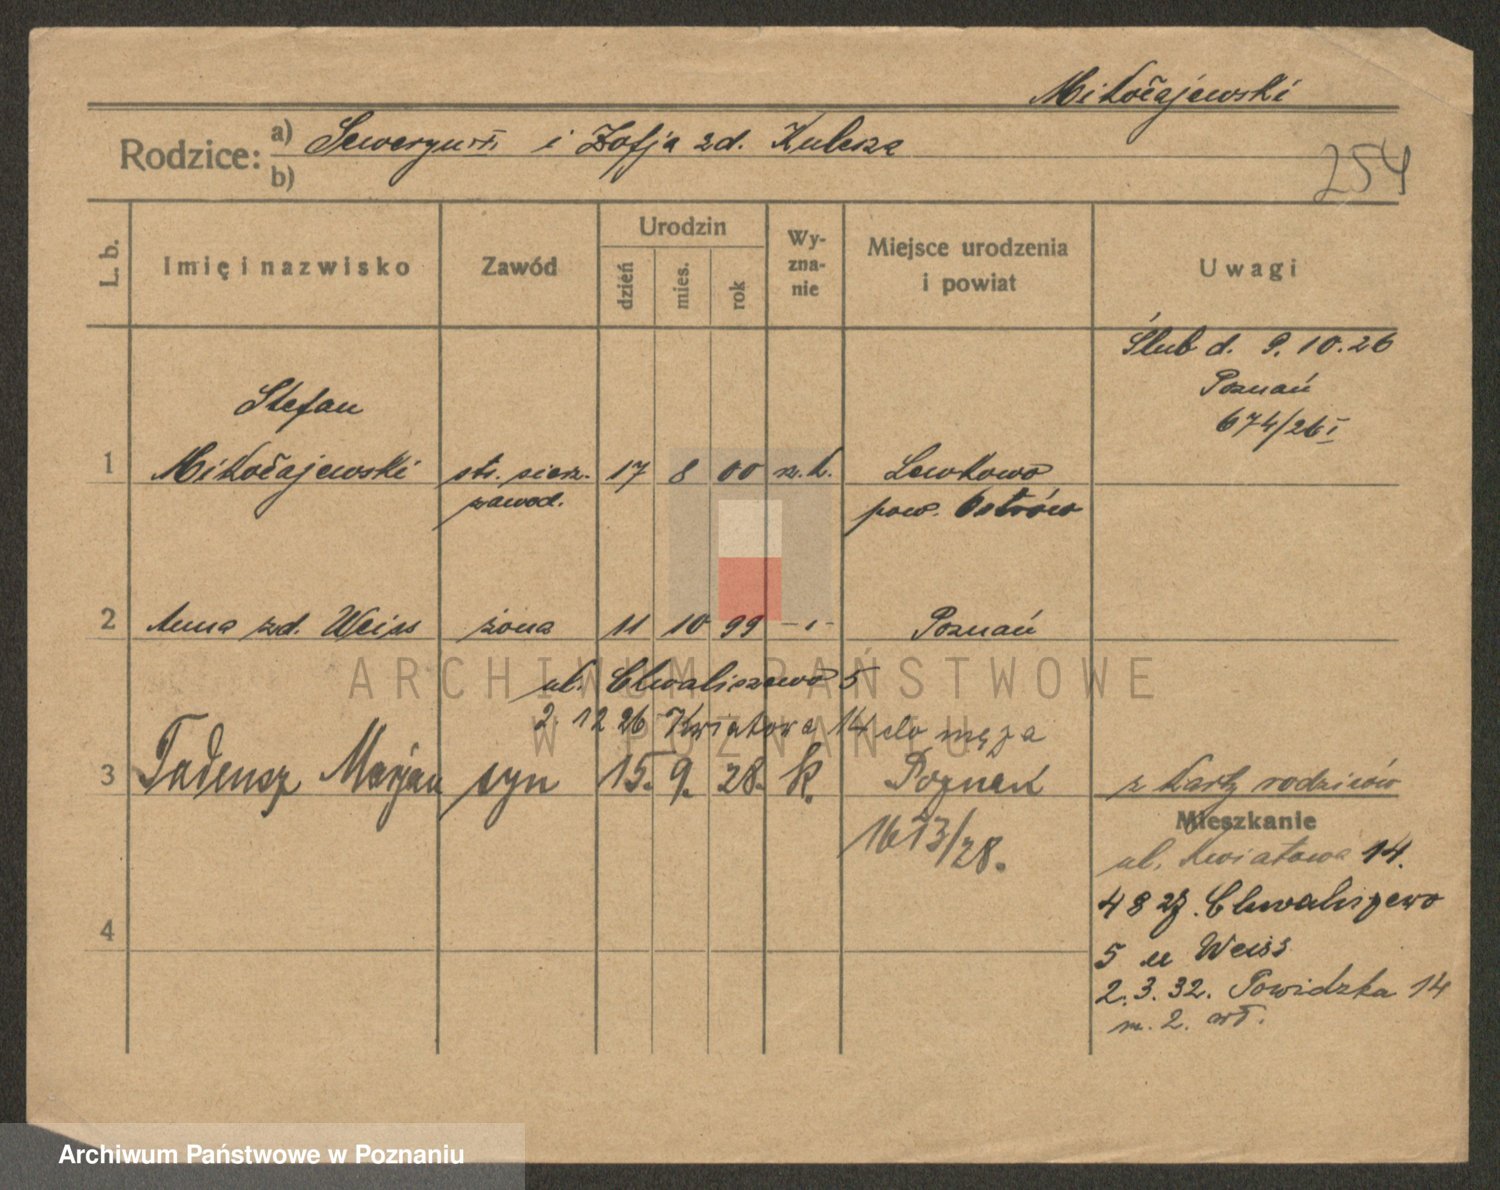 Mikołajewski
Rodzice: a) Seweryn i Zofja zd. Kulesza
b)
254
L. b.
Imię i nazwisko
Zawód
Urodzin
dzień
mies.
rok
Wy-
zna-
nie
Miejsce urodzenia
i powiat
Uwagi
Ślub d. 9.10.26
Poznań
674/26 I
Stefan
1 Mikołajewski sts. sierż. 17 8 00 rz. k. Lewkowo
zawod. pow. Ostrów
2 Anna zd. Weiss żona 11 10 99 -"- Poznań
ul. Chwaliszewo 5
2 12 26 Kwiatowa 14 do męża
3 Tadeusz Marjan syn 15. 9. 28. k. Poznań z karty rodziców
1673/28.
Mieszkanie
ul. Kwiatowa 14.
4 8 27. Chwaliszewo
5 u Weiss
2.3.32. Powidzka 14
m. 2. wł.
4
ARCHIWUM PAŃSTWOWE
W POZNANIU
Archiwum Państwowe w Poznaniu